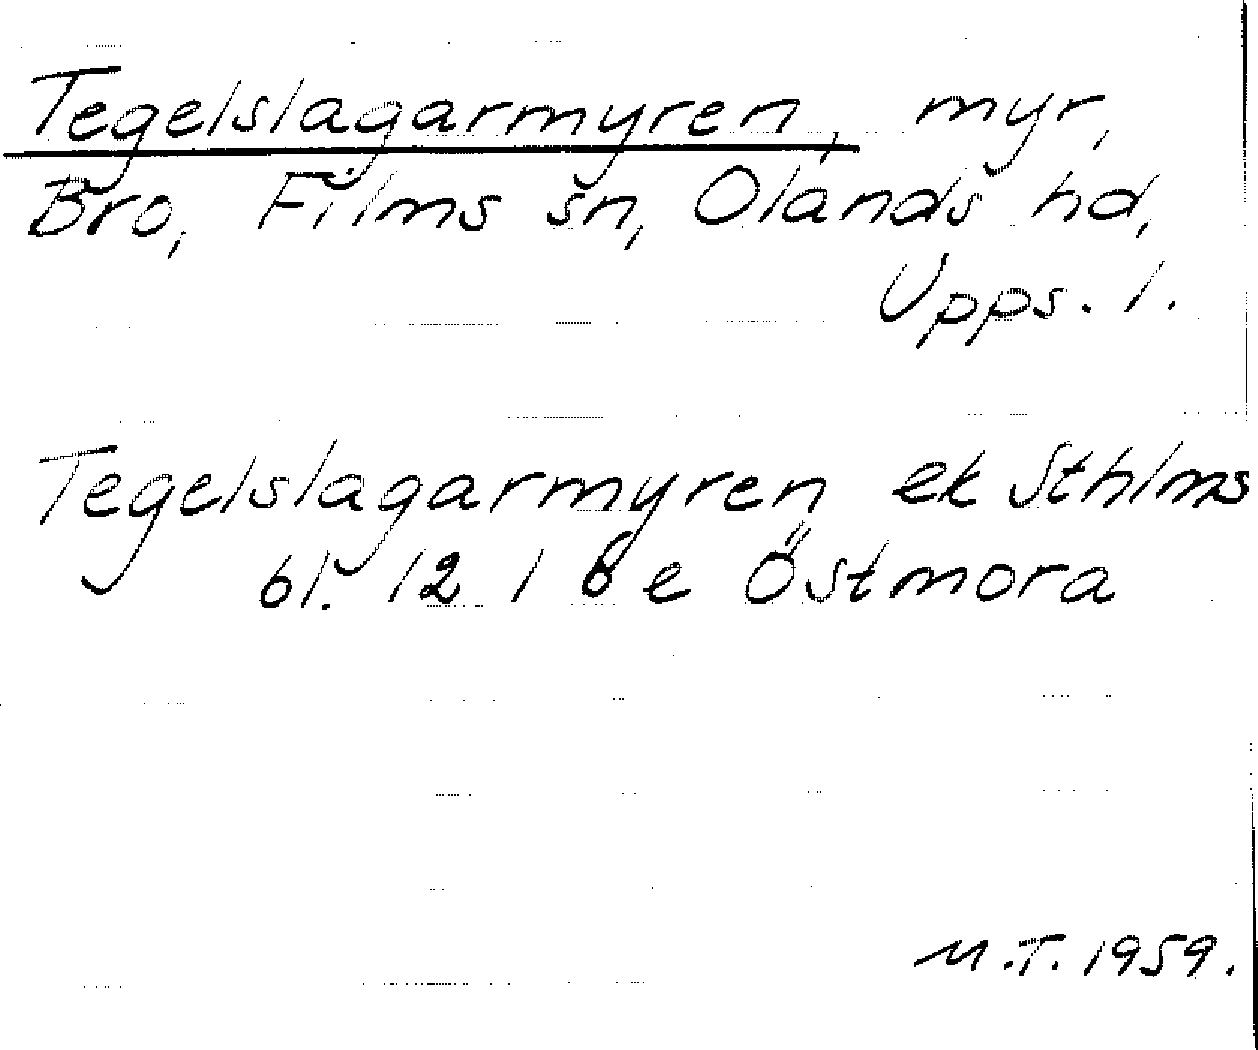 Tegelslagarmyren, myr,
Bro, Films sn, Olands hd,
Upps. l.
Tegelslagarmyren ek Sthlms
bl. 12 I 6 e Östmora
M.T. 1959.